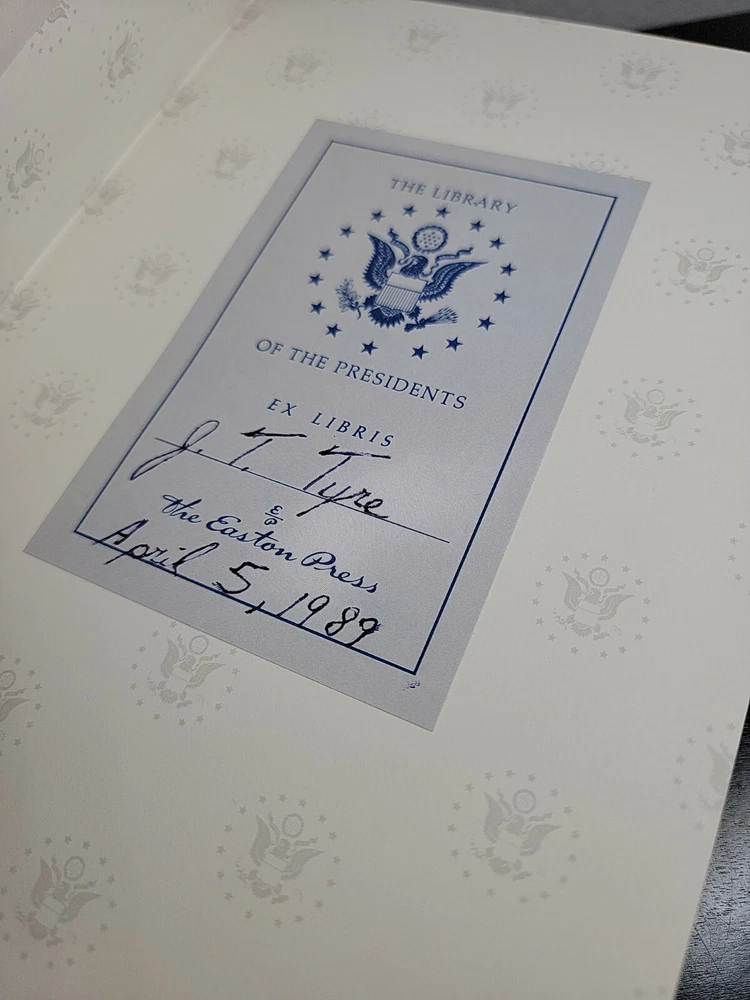 THE LIBRARY
OF THE PRESIDENTS
EX LIBRIS
J. T. Tyre
E/P
The Easton Press
April 5, 1989